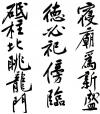 寢廟為新盛
德必祀傍臨
砥柱北眺龍門